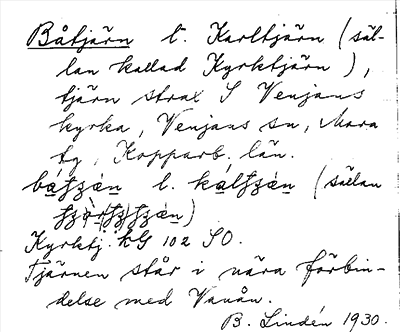 Båtjärn l. Karltjärn (säl-
lan kallad Kyrktjärn),
tjärn strax S Venjans
kyrka, Venjans sn, Mora
tg, Kopparb. län.
l. (sällan
Kyrktj. kG 102 SO.
Tjärnen står i nära förbin-
delse med Vanån.
B. Lindén 1930.